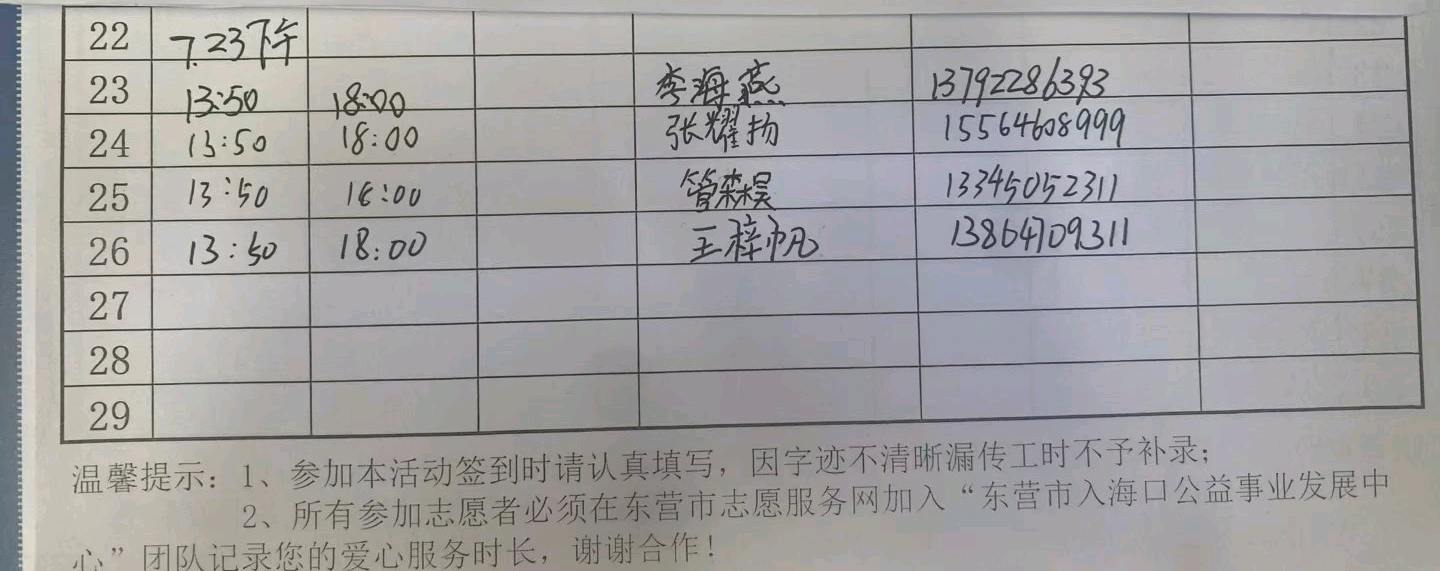 22 7.23下午
23 13:50 18:00 李海燕 13792286393
24 13:50 18:00 张耀扬 15564608999
25 13:50 18:00 管森昊 13345052311
26 13:50 18:00 王梓帆 13864709311
27
28
29
温馨提示：1、参加本活动签到时请认真填写，因字迹不清晰漏传工时不予补录；
2、所有参加志愿者必须在东营市志愿服务网加入“东营市入海口公益事业发展中
心”团队记录您的爱心服务时长，谢谢合作！